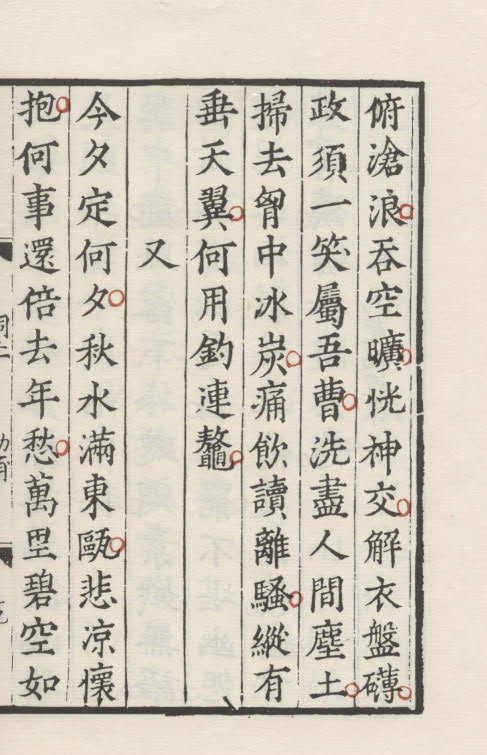 俯滄浪吞空曠恍神交解衣盤礴
政須一笑屬吾曹洗盡人間塵土
掃去胷中冰炭痛飲讀離騷縱有
垂天翼何用釣連鼇
又
今夕定何夕秋水滿東甌悲凉懷
抱何事還倍去年愁萬里碧空如